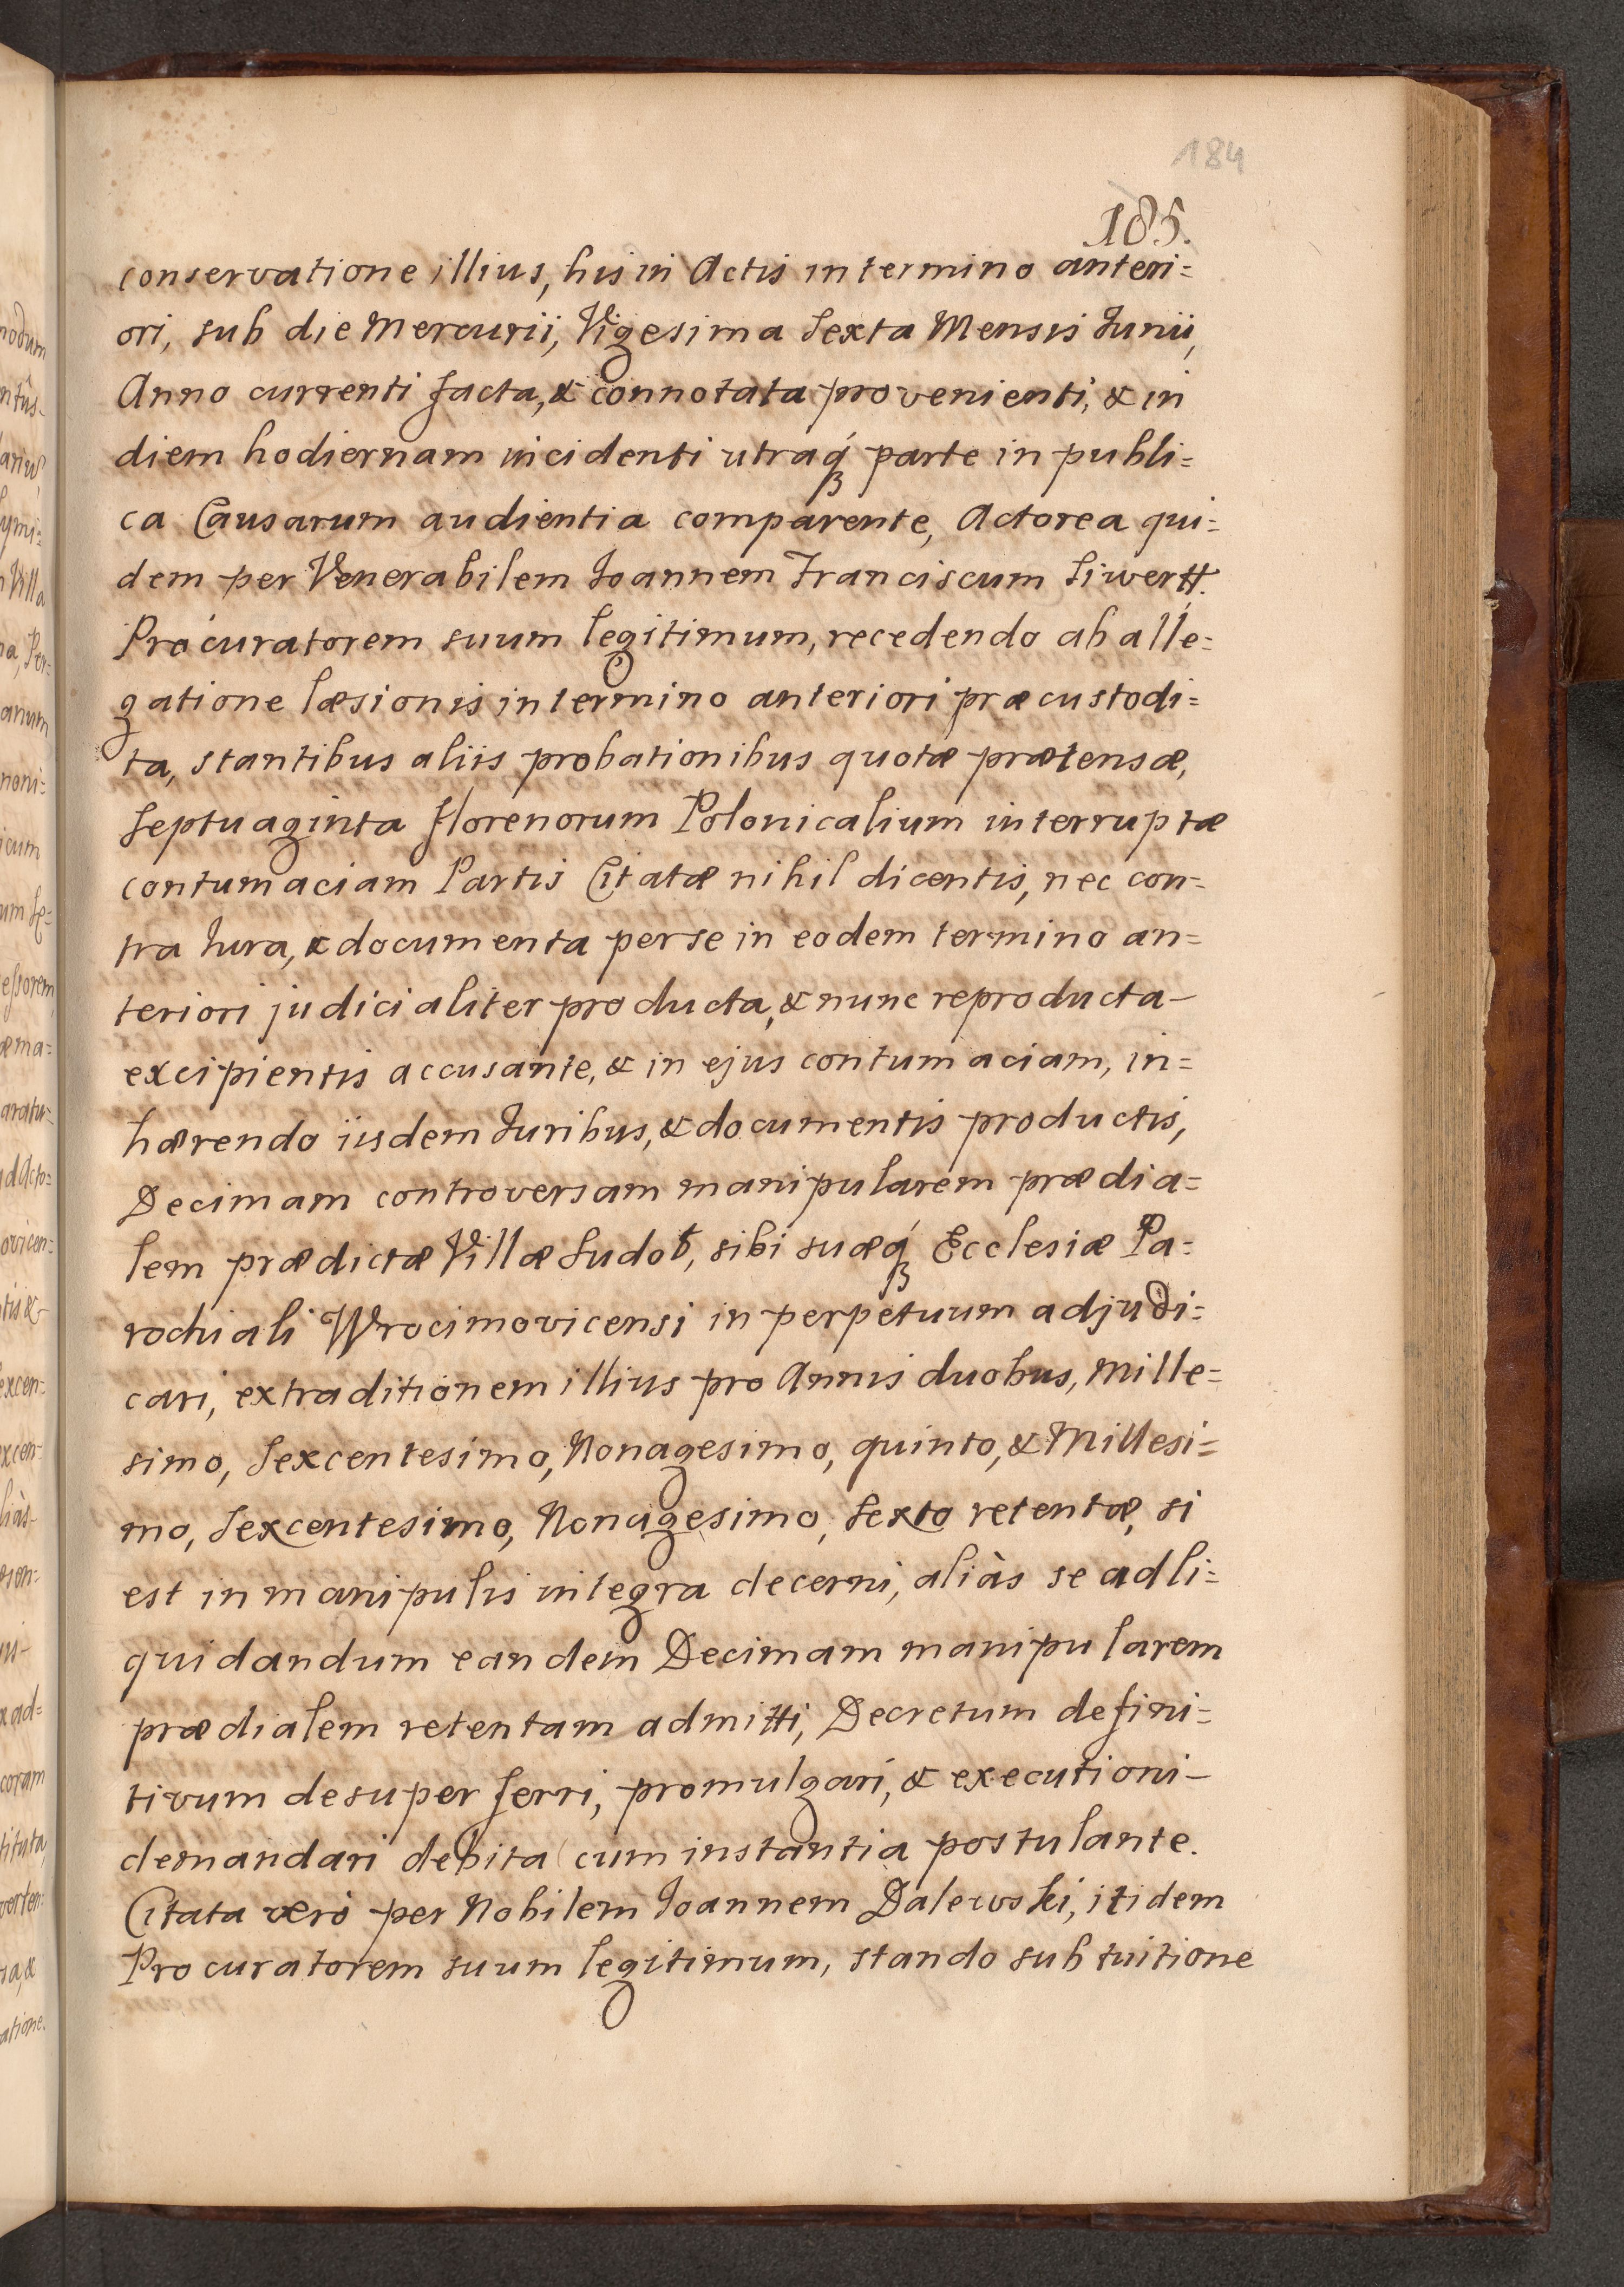 184
185.
conservatione illius, his in Actis in termino anteri=
ori, sub die Mercurii, Vigesima Sexta Mensis Junii,
Anno currenti facta, & connotata provenienti, & in
diem hodiernam incidenti utraq́ꝫ parte in publi=
ca Causarum audientia comparente, Actorea qui=
dem per Venerabilem Joannem Franciscum Siwertt.
Procuratorem suum legitimum, recedendo ab alle=
gatione læsionis in termino anteriori præcustodi=
ta, stantibus aliis probationibus quotæ prætensæ,
Septuaginta florenorum Polonicalium interruptæ
contumaciam Partis Citatæ nihil dicentis, nec con=
tra Jura, & documenta per se in eodem termino an=
teriori judicialiter producta, & nunc reproducta-
excipientis accusante, & in ejus contumaciam, in=
hærendo iisdem Juribus, & documentis productis,
Decimam controversam manipularem prædia=
lem prædictæ Villæ Sudoł, sibi suæq́ꝫ Ecclesiæ Pa=
rochiali Wrocimovicensi in perpetuum adjudi=
cari, extraditionem illius pro Annis duobus, Mille=
simo, Sexcentesimo, Nonagesimo, quinto, & Millesi=
mo, Sexcentesimo, Nonagesimo, Sexto retentæ, si
est in manipulis integra decerni, aliàs se ad li=
quidandum eandem Decimam manipularem
prædialem retentam admitti, Decretum defini=
tivum desuper ferri, promulgari, & executioni-
demandari debita cum instantia postulante.
Citata verò per Nobilem Joannem Dalewski, itidem
Procuratorem suum legitimum, stando sub tuitione